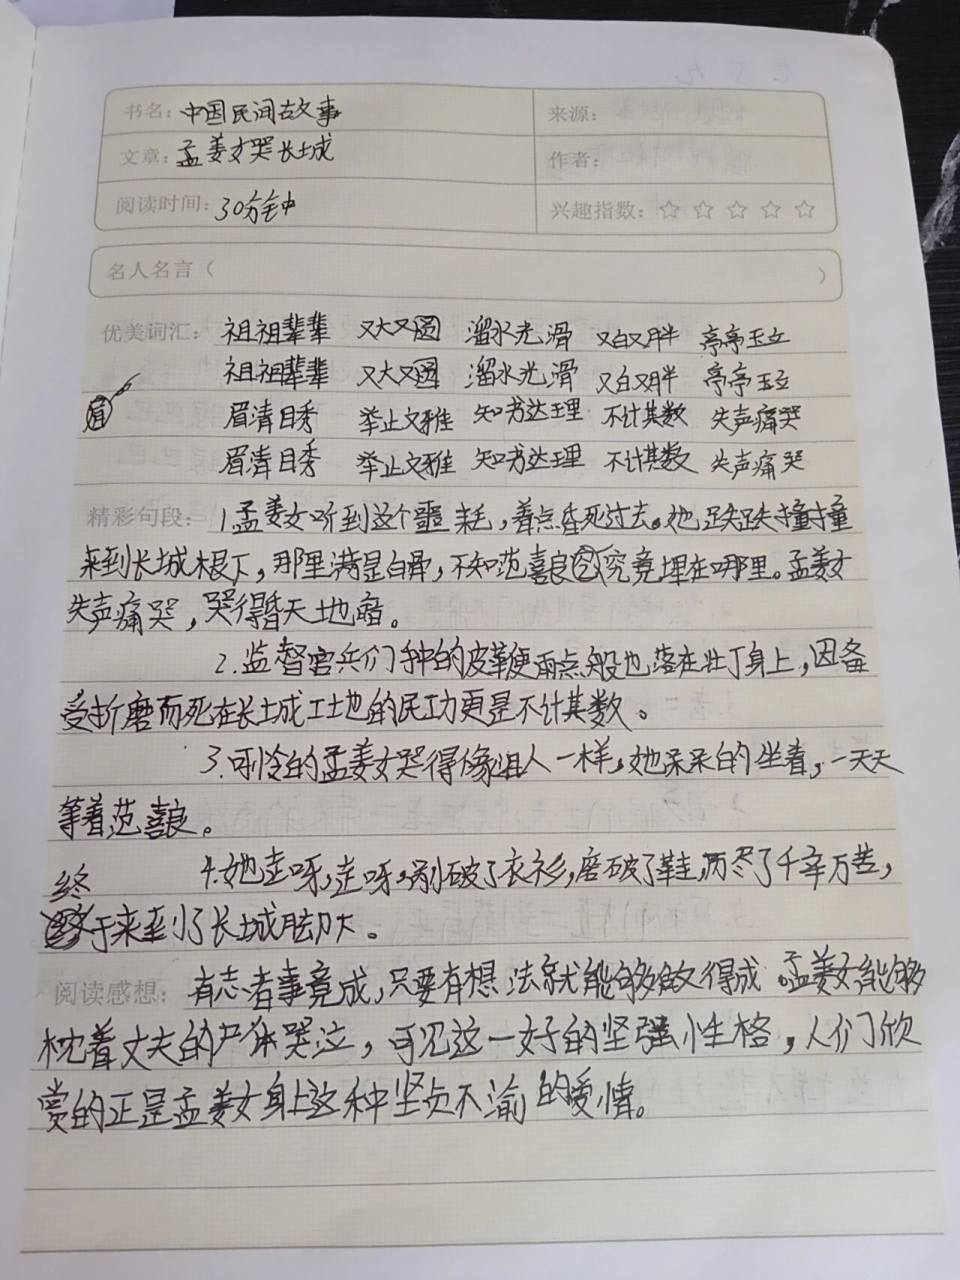 书名: 中国民间故事 来源:
文章: 孟姜女哭长城 作者:
阅读时间: 30分钟 兴趣指数: ☆ ☆ ☆ ☆ ☆
名人名言 ( )
优美词汇: 祖祖辈辈 又大又圆 溜水光滑 又白又胖 亭亭玉立
祖祖辈辈 又大又圆 溜水光滑 又白又胖 亭亭玉立
眉 眉清目秀 举止文雅 知书达理 不计其数 失声痛哭
眉清目秀 举止文雅 知书达理 不计其数 失声痛哭
精彩句段: 1.孟姜女听到这个噩耗,着点昏死过去。她跌跌撞撞
来到长城根下,那里满是白骨,不知范喜良究竟埋在哪里。孟姜女
失声痛哭,哭得昏天地暗。
2.监督官兵们手中的皮鞭雨点般也落在壮丁身上,因备
受折磨而死在长城工地的民工更是不计其数。
3.可怜的孟姜女哭得像泪人一样,她呆呆的坐着,一天天
等着范喜良。
终 4.她走呀,走呀,剐破了衣衫,磨破了鞋,历尽了千辛万苦,
于来到了长城脚下。
阅读感想: 有志者事竟成,只要有想法就能够做得成。孟姜女能够
枕着丈夫的尸体哭泣,可见这一好的坚强性格,人们欣
赏的正是孟姜女身上这种坚贞不渝的爱情。